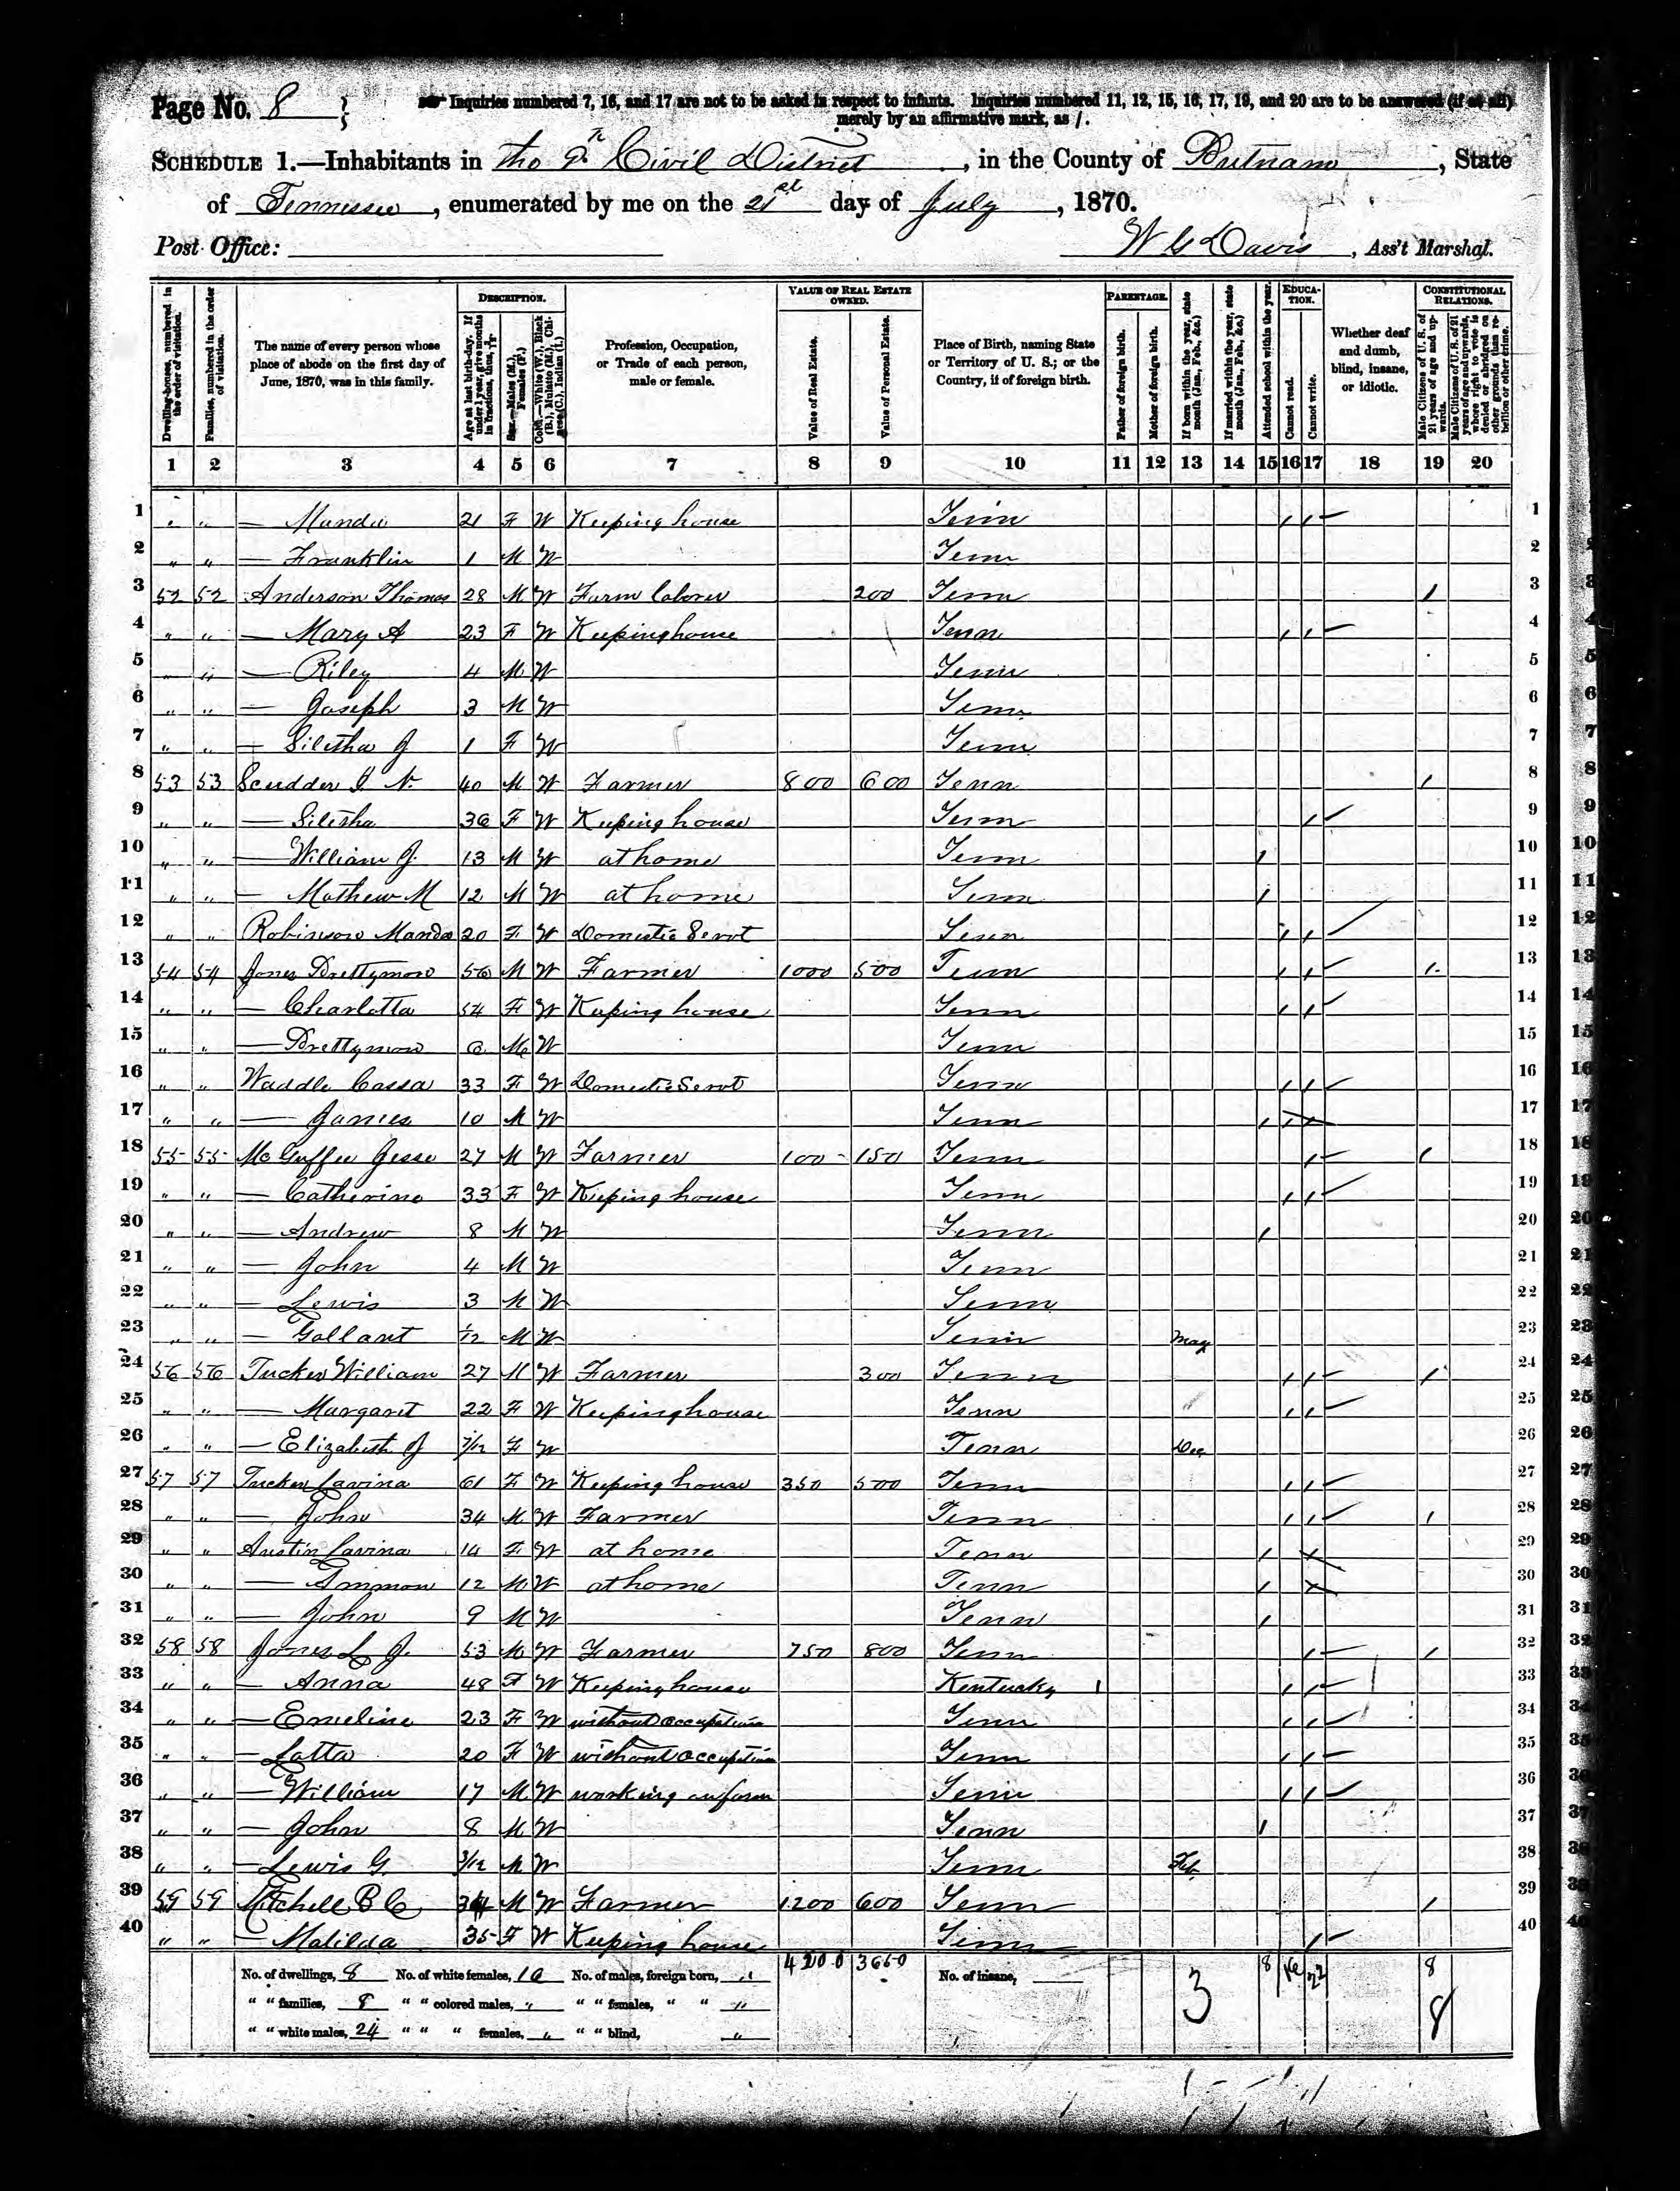 Page No. 8
Inquiries numbered 7, 16, and 17 are not to be asked in respect to infants. Inquiries numbered 11, 12, 15, 16, 17, 19, and 20 are to be answered (if at all)
merely by an affirmative mark, as /.
SCHEDULE 1.—Inhabitants in the Civil District, in the County of Putnam, State
of Tennessee, enumerated by me on the 21st day of July, 1870.
Post Office:
W G Davis, Ass't Marshal.
Dwelling-houses, numbered in the order of visitation.
Families, numbered in the order of visitation.
The name of every person whose place of abode on the first day of June, 1870, was in this family.
DESCRIPTION.
Age at last birth-day. If under 1 year, give months in fractions, thus, 3/12.
Sex.—Males (M.), Females (F.)
Color.—White (W.), Black (B.), Mulatto (M.), Chinese (C.), Indian (I.)
Profession, Occupation, or Trade of each person, male or female.
VALUE OF REAL ESTATE OWNED.
Value of Real Estate.
Value of Personal Estate.
Place of Birth, naming State or Territory of U. S.; or the Country, if of foreign birth.
PARENTAGE.
Father of foreign birth.
Mother of foreign birth.
If born within the year, state month (Jan., Feb., &c.)
If married within the year, state month (Jan., Feb., &c.)
Attended school within the year.
EDUCATION.
Cannot read.
Cannot write.
Whether deaf and dumb, blind, insane, or idiotic.
CONSTITUTIONAL RELATIONS.
Male Citizens of U. S. of 21 years of age and upwards.
Male Citizens of U. S. of 21 years of age and upwards, whose right to vote is denied or abridged on other grounds than rebellion or other crime.
1 2 3 4 5 6 7 8 9 10 11 12 13 14 15 16 17 18 19 20
1 " " — Manda 21 F W Keeping house Tenn / / 1
2 " " — Franklin 1 M W Tenn 2
3 52 52 Anderson Thomas 28 M W Farm laborer 200 Tenn 1 3
4 " " — Mary A 23 F W Keeping house Tenn / / 4
5 " " — Riley 4 M W Tenn 5
6 " " — Joseph 3 M W Tenn 6
7 " " — Siletha J 1 F W Tenn 7
8 53 53 Scudder J N. 40 M W Farmer 800 600 Tenn 1 8
9 " " — Siletha 36 F W Keeping house Tenn / 9
10 " " — William J. 13 M W at home Tenn 1 10
11 " " — Mathew M 12 M W at home Tenn 1 11
12 " " Robinson Manda 20 F W Domestic Servt Tenn / / 12
13 54 54 Jones Prettyman 56 M W Farmer 1000 500 Tenn / / 1 13
14 " " — Charlotta 54 F W Keeping house Tenn / / 14
15 " " — Prettyman 6 M W Tenn 15
16 " " Waddle Cassa 33 F W Domestic Servt Tenn / / 16
17 " " — James 10 M W Tenn / 17
18 55 55 McGuffee Jesse 27 M W Farmer 100 150 Tenn / 1 18
19 " " — Catherine 33 F W Keeping house Tenn / / 19
20 " " — Andrew 8 M W Tenn / 20
21 " " — John 4 M W Tenn 21
22 " " — Lewis 3 M W Tenn 22
23 " " — Gallant 1/12 M W Tenn May 23
24 56 56 Tucker William 27 M W Farmer 300 Tenn / / 1 24
25 " " — Margaret 22 F W Keeping house Tenn / / 25
26 " " — Elizabeth J 7/12 F W Tenn Dec 26
27 57 57 Tucker Lavina 61 F W Keeping house 350 500 Tenn / / 27
28 " " — John 34 M W Farmer Tenn / / 1 28
29 " " Austin Lavina 14 F W at home Tenn / 29
30 " " — Ammon 12 M W at home Tenn / 30
31 " " — John 9 M W Tenn / 31
32 58 58 Jones L J. 53 M W Farmer 750 800 Tenn / 1 32
33 " " — Anna 48 F W Keeping house Kentucky 1 / / 33
34 " " — Emeline 23 F W without occupation Tenn / / 34
35 " " — Latta 20 F W without occupation Tenn / / 35
36 " " — William 17 M W working on farm Tenn / / 36
37 " " — John 8 M W Tenn 1 37
38 " " — Lewis G. 3/12 M W Tenn Feb 38
39 59 59 Mitchell B C 34 M W Farmer 1200 600 Tenn 1 39
40 " " — Matilda 35 F W Keeping house Tenn / 40
No. of dwellings, 8 No. of white females, 16 No. of males, foreign born, " 4200 3650 No. of insane, 3 8 16 22 8
" " families, 8 " " colored males, " " " females, " " " 8
" " white males, 24 " " " females, " " " blind, "